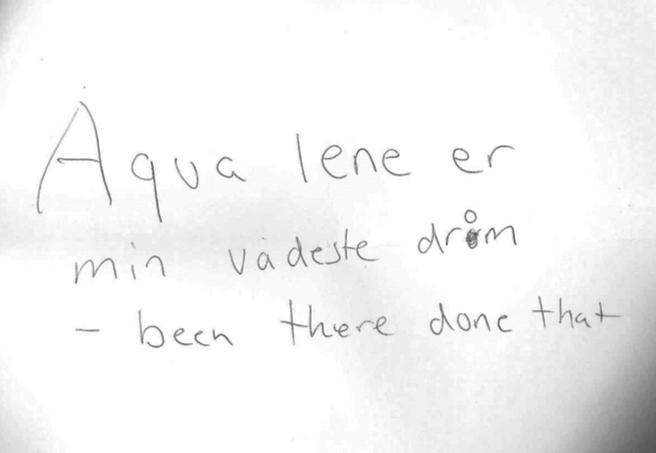 Aqua lene er
min vådeste dråm
- been there done that